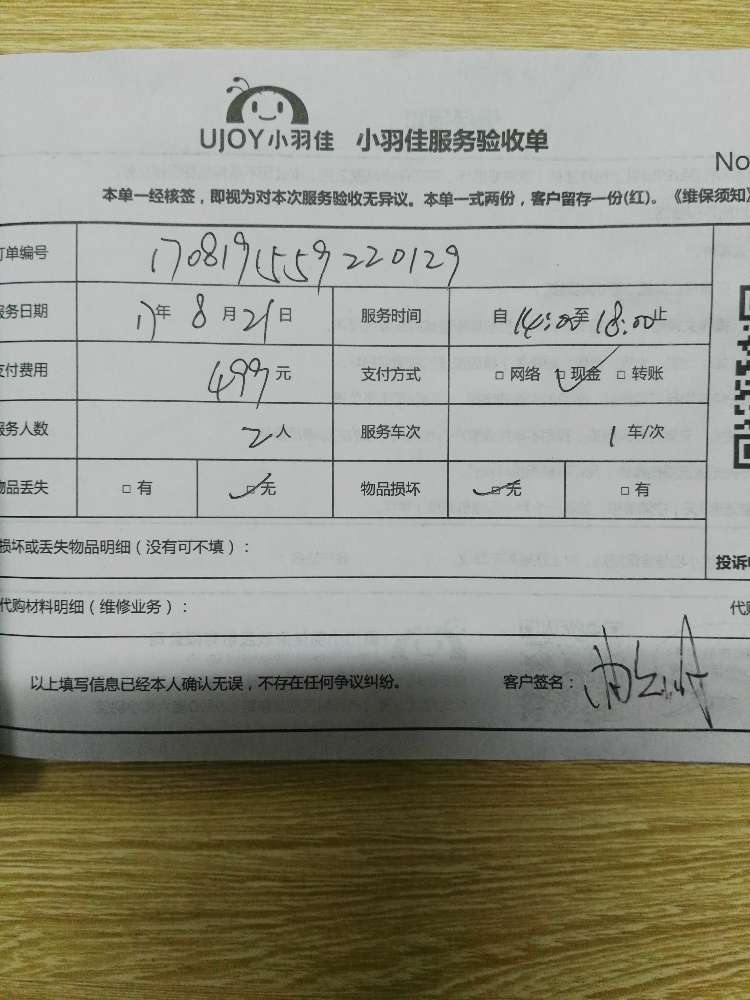 UJOY小羽佳 小羽佳服务验收单
No
本单一经核签，即视为对本次服务验收无异议。本单一式两份，客户留存一份(红)。《维保须知》
订单编号 1708191559220129
服务日期 17年 8月21日 服务时间 自14:00至18:00止
支付费用 499元 支付方式 □网络 ☑现金 □转账
服务人数 2人 服务车次 1车/次
物品丢失 □有 ☑无 物品损坏 ☑无 □有
损坏或丢失物品明细（没有可不填）：
投诉
代购材料明细（维修业务）： 代购
以上填写信息已经本人确认无误，不存在任何争议纠纷。 客户签名：